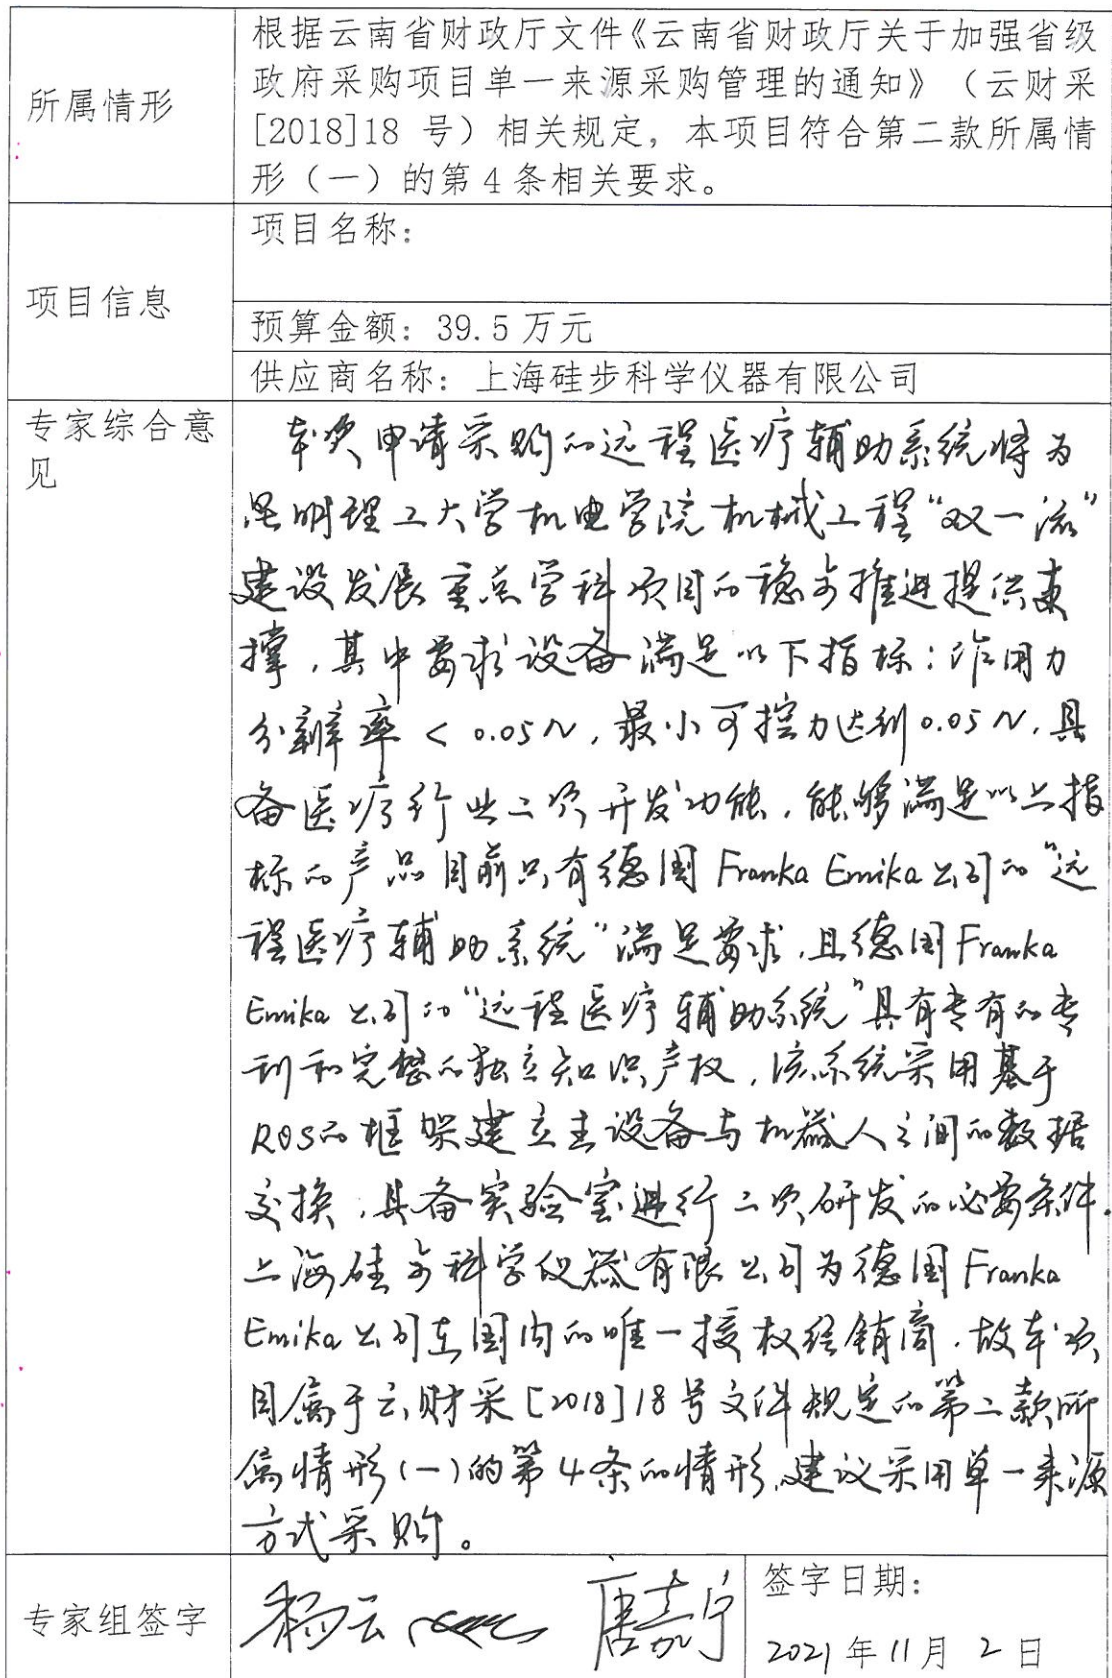 所属情形
根据云南省财政厅文件《云南省财政厅关于加强省级
政府采购项目单一来源采购管理的通知》（云财采
[2018]18 号）相关规定，本项目符合第二款所属情
形（一）的第 4 条相关要求。
项目信息
项目名称：
预算金额：39.5 万元
供应商名称：上海硅步科学仪器有限公司
专家综合意
见
本次申请采购的远程医疗辅助系统将为
昆明理工大学机电学院机械工程“双一流”
建设发展重点学科项目的稳步推进提供支
撑，其中要求设备满足以下指标：作用力
分辨率＜0.05N，最小可控力达到0.05N，具
备医疗行业二次开发功能，能够满足以上指
标的产品目前只有德国 Franka Emika 公司的“远
程医疗辅助系统”满足要求，且德国 Franka
Emika 公司的“远程医疗辅助系统”具有专有的专
利和完整的独立知识产权，该系统采用基于
ROS的框架建立主设备与机器人之间的数据
交换，具备实验室进行二次研发的必要条件．
上海硅步科学仪器有限公司为德国 Franka
Emika 公司在国内的唯一授权经销商，故本项
目属于云财采[2018]18号文件规定的第二款所
属情形(一)的第4条的情形，建议采用单一来源
方式采购。
专家组签字
杨云 唐嘉宁
签字日期：
2021 年 11 月 2 日